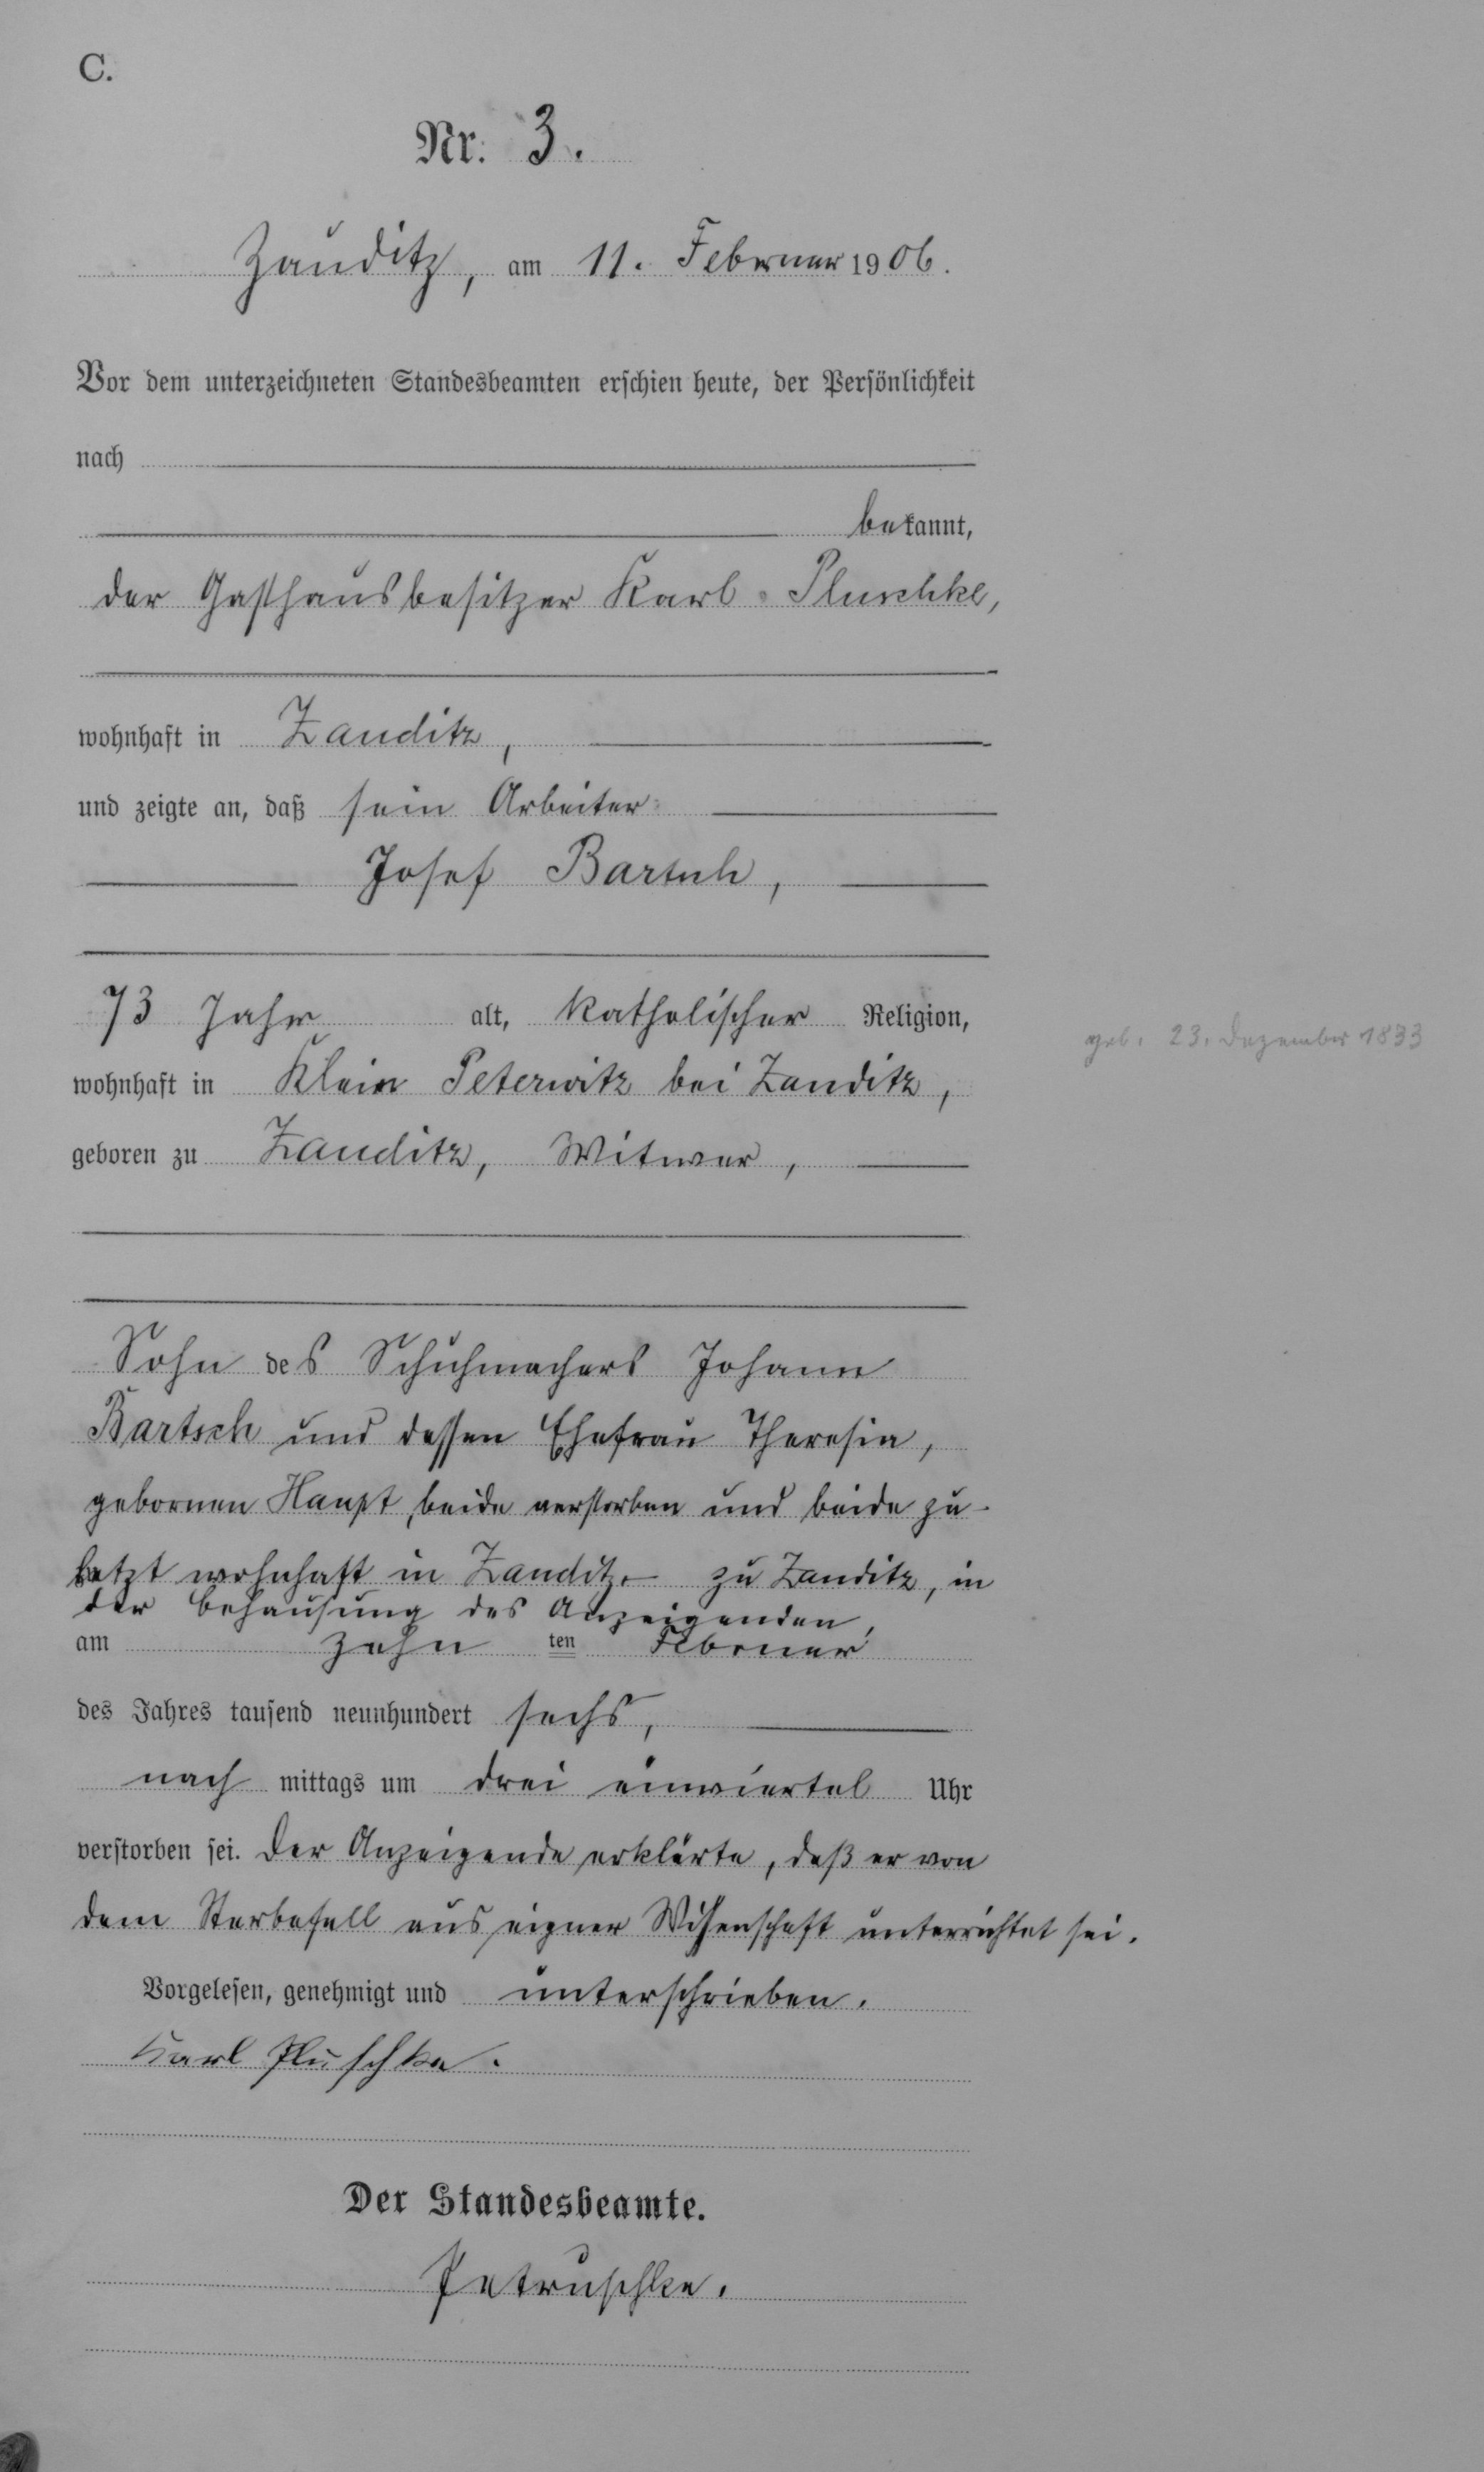 C.
Nr. 3.
Zauditz, am 11. Februar 1906.
Vor dem unterzeichneten Standesbeamten erschien heute, der Persönlichkeit
nach
bekannt,
der Gasthausbesitzer Karl Pluschke,
wohnhaft in Zauditz,
und zeigte an, daß sein Arbeiter
Josef Bartsch,
73 Jahr alt, katholischer Religion,
geb. 23. Dezember 1833
wohnhaft in Klein Peterwitz bei Zauditz,
geboren zu Zauditz, Witwer,
Sohn des Schuhmachers Johann
Bartsch und dessen Ehefrau Theresia,
gebornen Haupt, beide verstorben und beide zu-
letzt wohnhaft in Zauditz, zu Zauditz, in
der Behausung des Anzeigenden,
am zehn ten Februar
des Jahres tausend neunhundert sechs,
nach mittags um drei einviertel Uhr
verstorben sei. Der Anzeigende erklärte, daß er von
dem Sterbefall aus eigner Wissenschaft unterrichtet sei.
Vorgelesen, genehmigt und unterschrieben.
Karl Pluschke.
Der Standesbeamte.
Petruschke.